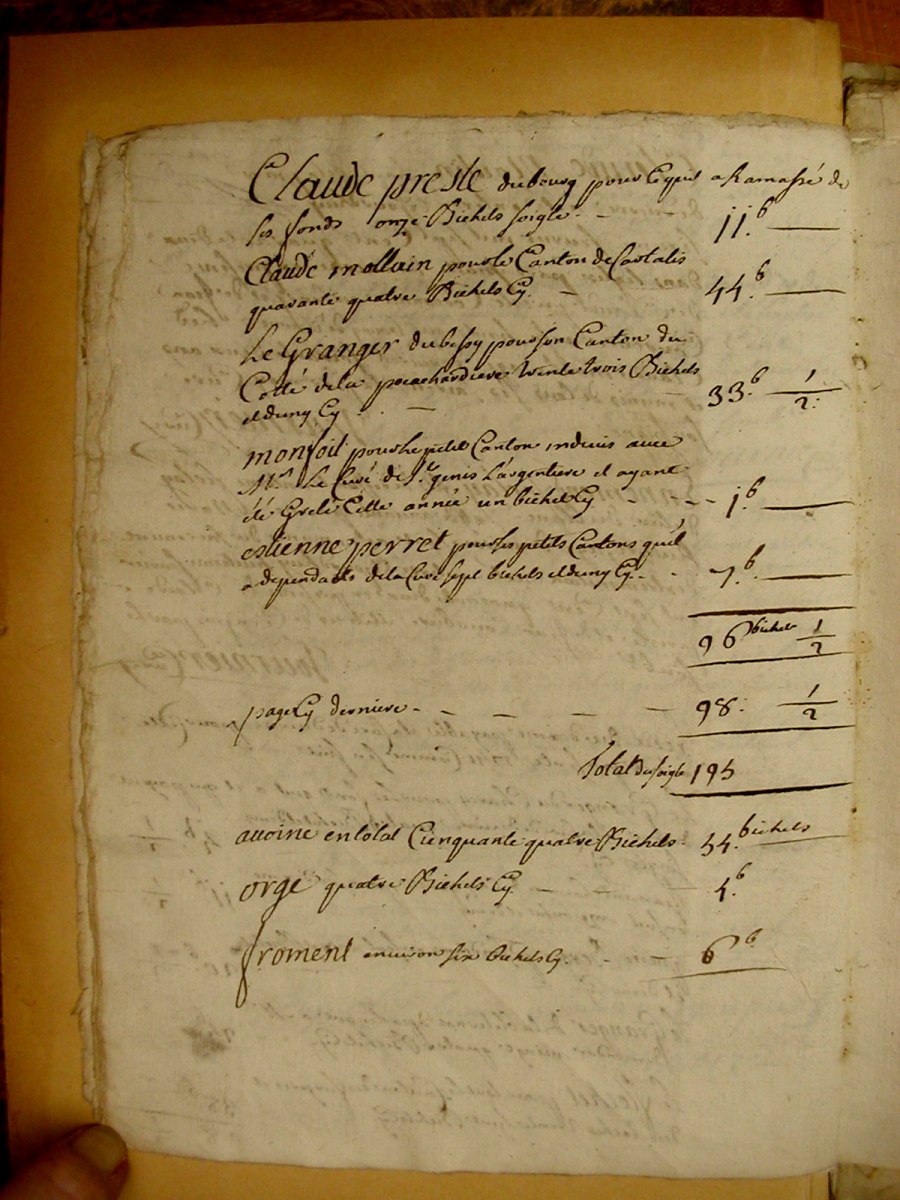 Claude preste du bourg pour Cy qu'il a Ramassé de
ses fonds onze Bichets soigle - 11.b
Claude mollain pour le Canton de
quarante quatre Bichets Cy - 44.b
Le Granger du bessy pour son Canton du
Cotté de la pocachardiere trente trois Bichets
et demy Cy - 33.b 1/2.
monfoit pour le petit Canton indivis avec
Mr. Le Curé de St. genis L'argentiere et ayant
été Grelé Cette année un bichet Cy - - - - 1.b
estienne perret pour les petits Cantons qu'il
a dependants de la Cure sept bichets et demy Cy - - 7.b
96 bichets 1/2
page Cy derniere - - - - - 98. 1/2
Total du soigle 195
avoine en total Cienquante quatre Bichets - 54. bichets
orge quatre Bichets Cy - - - 4.b
froment environ six bichets Cy. - - 6b